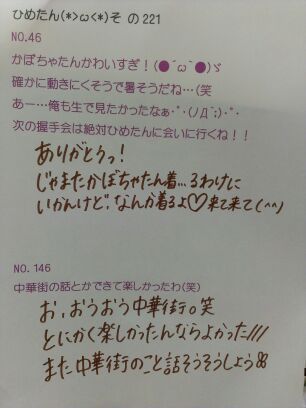 ひめたん(*>ω<*)そ の221
NO.46
かぼちゃたんかわいすぎ！(●´ω`●)ゞ
確かに動きにくそうで暑そうだね…(笑
あー…俺も生で見たかったなぁ･ﾟ･(ﾉД`;)･ﾟ･
次の握手会は絶対ひめたんに会いに行くね！！
ありがとうっ！
じゃまたかぼちゃたん着…るわけに
いかんけど、なんか着るよ♡来て来て(^^)
NO. 146
中華街の話とかできて楽しかったわ(笑)
お、おうおう中華街。笑
とにかく楽しかったんならよかった///
また中華街のこと話そうそうしよう